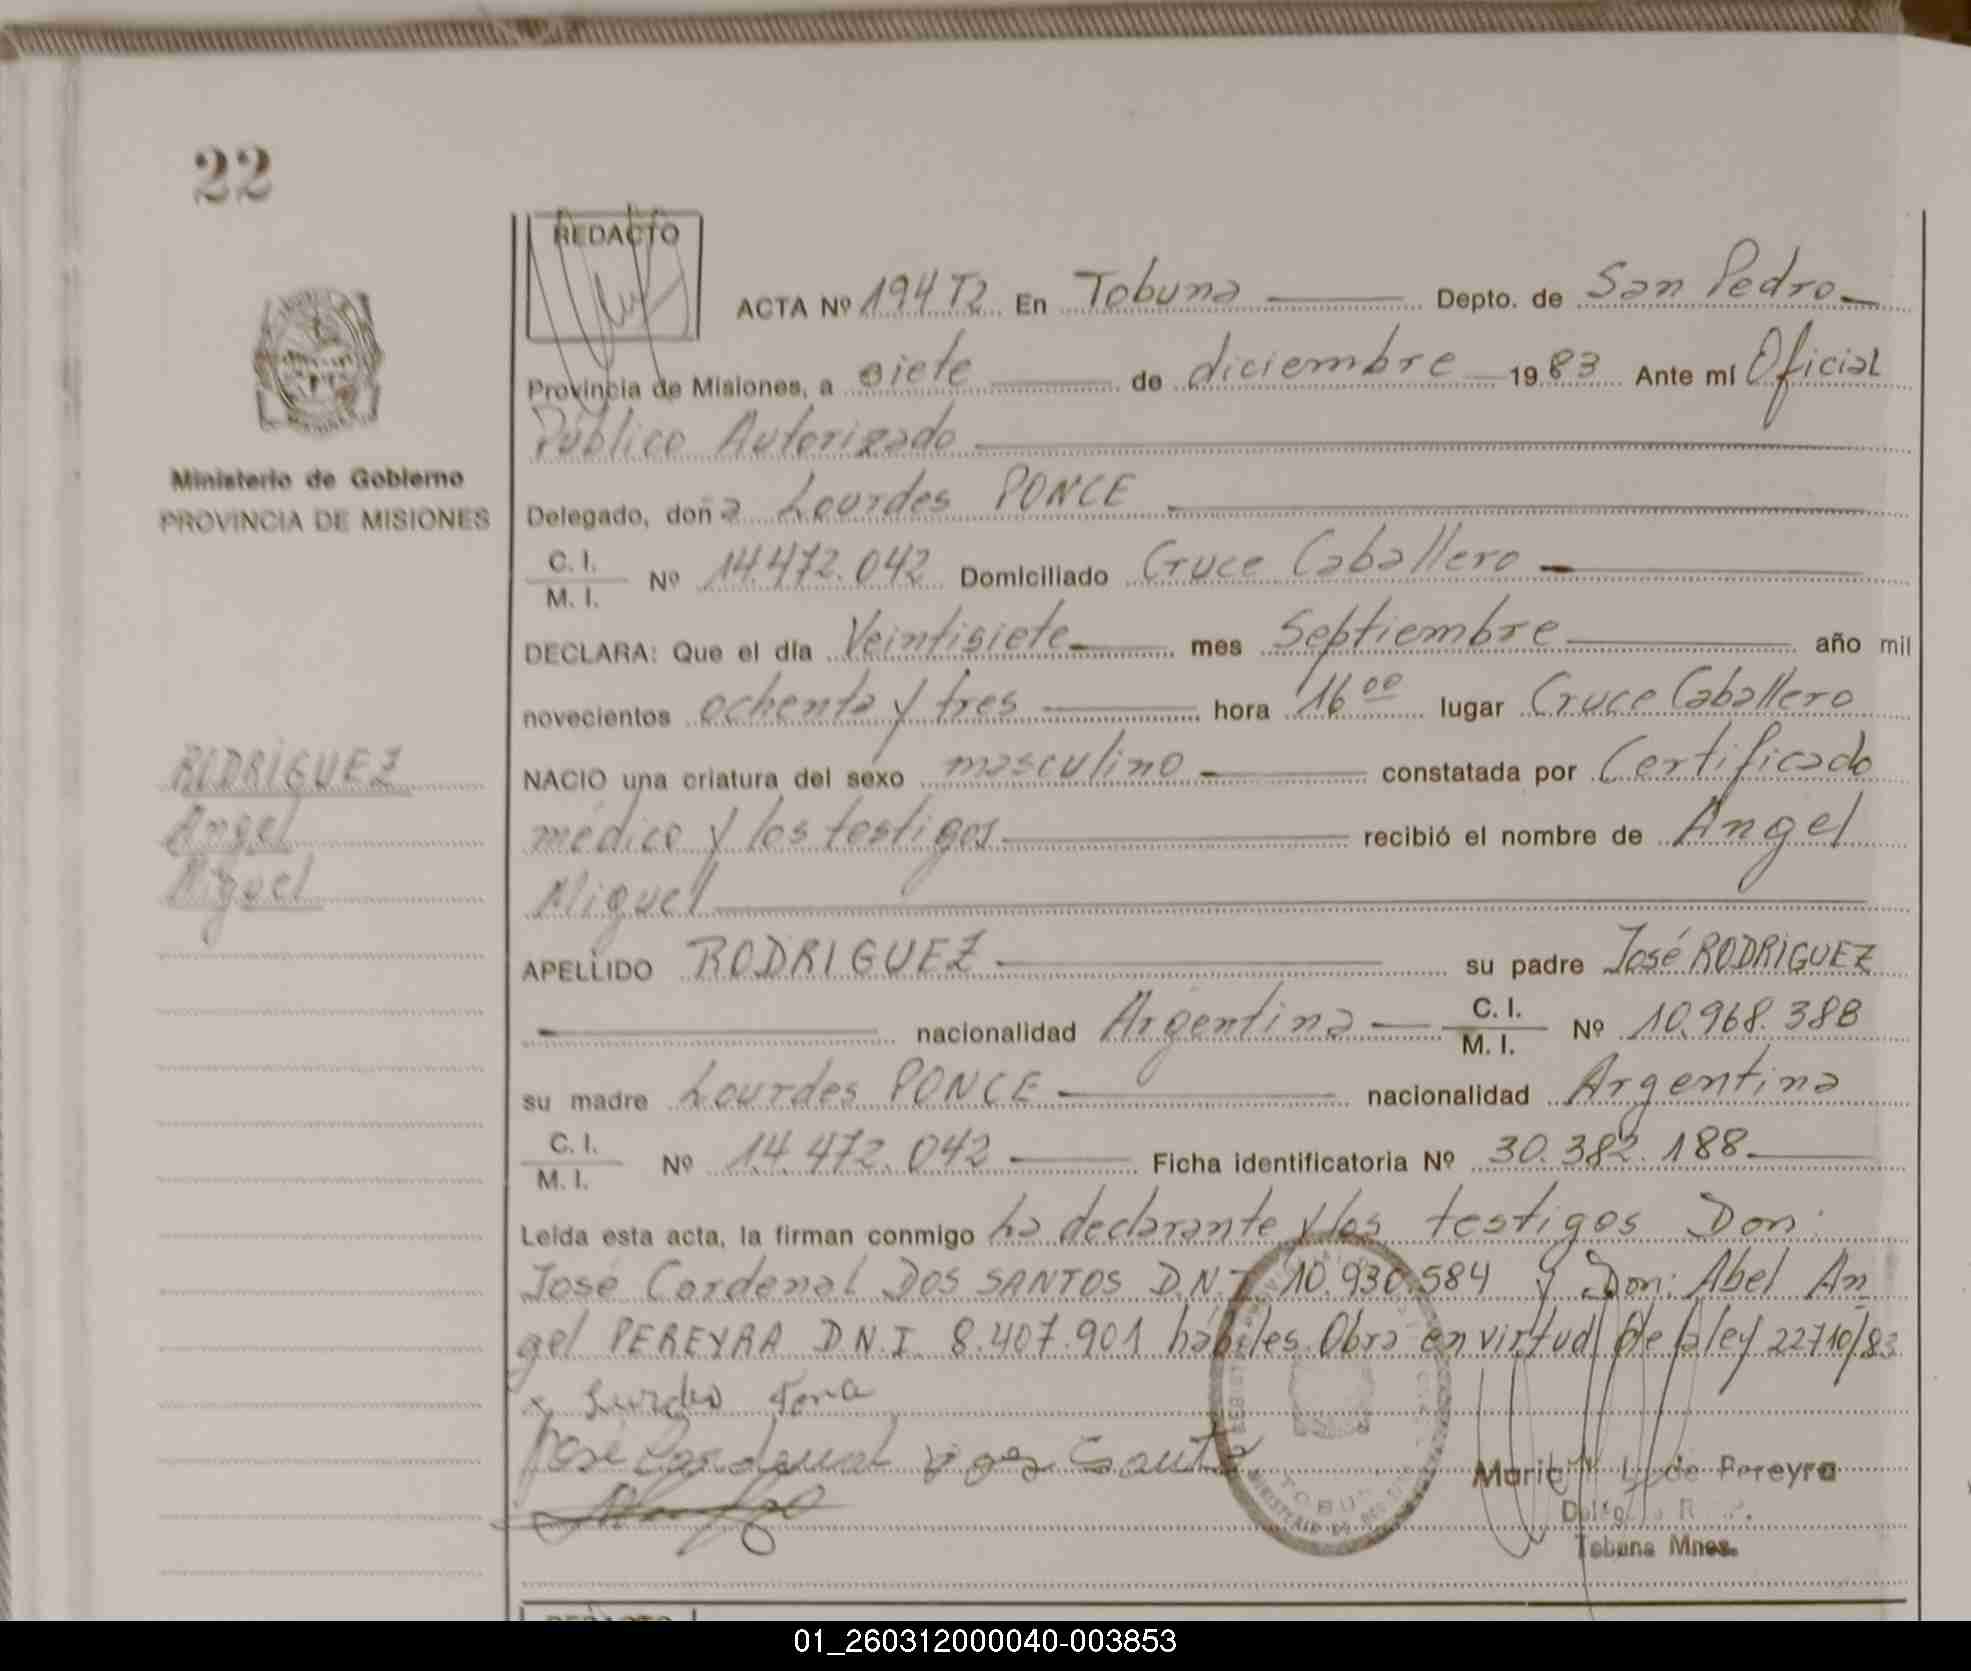 22
REDACTO
ACTA Nº 194 T2 En Tobuna Depto. de San Pedro
Provincia de Misiones, a siete de diciembre 1983 Ante mí Oficial
Público Autorizado
Ministerio de Gobierno
PROVINCIA DE MISIONES
Delegado, doña Lourdes PONCE
C. I.
M. I. Nº 14.472.042 Domiciliado Cruce Caballero
DECLARA: Que el día Veintisiete mes Septiembre año mil
novecientos ochenta y tres hora 16 00 lugar Cruce Caballero
RODRIGUEZ
Angel
Miguel
NACIO una criatura del sexo masculino constatada por Certificado
médico y los testigos recibió el nombre de Angel
Miguel
APELLIDO RODRIGUEZ su padre José RODRIGUEZ
nacionalidad Argentina C. I.
M. I. Nº 10.968.388
su madre Lourdes PONCE nacionalidad Argentina
C. I.
M. I. Nº 14.472.042 Ficha identificatoria Nº 30.382.188
Leída esta acta, la firman conmigo la declarante y los testigos Don:
José Cardenal DOS SANTOS D.N.I. 10.930.584 y Don: Abel An
gel PEREYRA D.N.I 8.407.901 hábiles. Obra en virtud de la ley 22710/83
José Cardenal dos Santo
TOBUNA
de Pereyra
Tobuna Mnes.
REDACTO
01_260312000040-003853